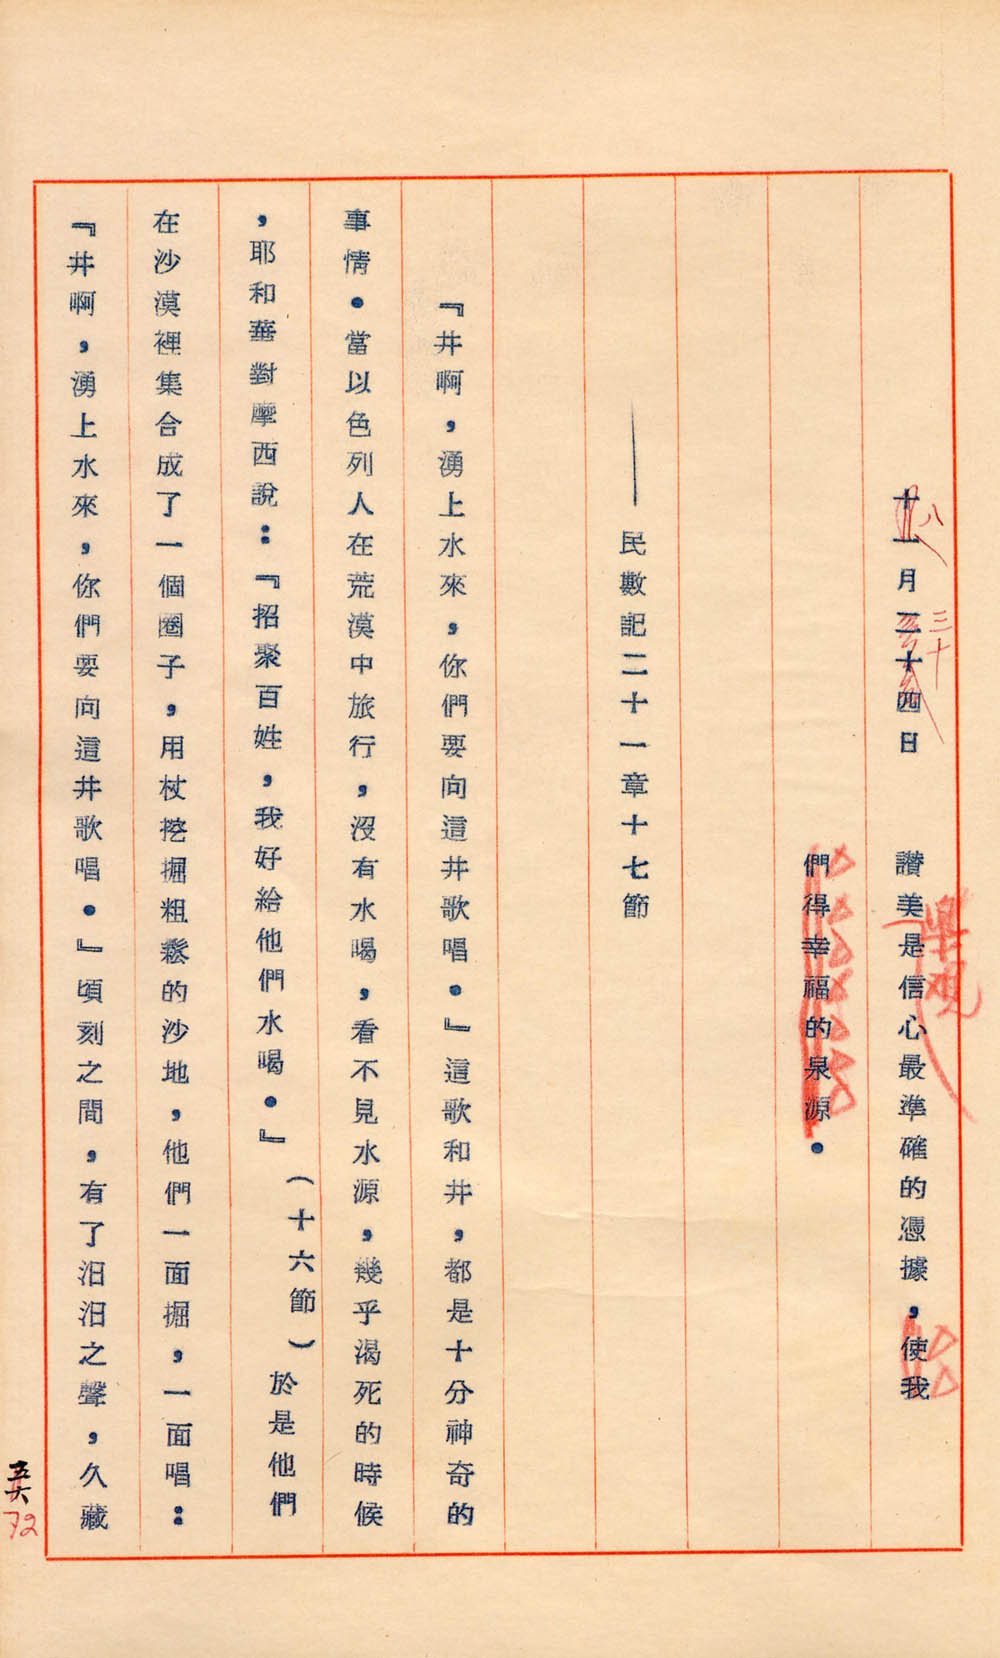 十一月二十四日　讚美是信心最準確的憑據，使我
八
三十
樂觀
們得幸福的泉源．
——民數記二十一章十七節
『井啊，湧上水來，你們要向這井歌唱．』這歌和井，都是十分神奇的
事情．當以色列人在荒漠中旅行，沒有水喝，看不見水源，幾乎渴死的時候
，耶和華對摩西說：『招聚百姓，我好給他們水喝．』（十六節）於是他們
在沙漠裡集合成了一個圈子，用杖挖掘粗鬆的沙地，他們一面掘，一面唱：
『井啊，湧上水來，你們要向這井歌唱．』頃刻之間，有了汩汩之聲，久藏
72